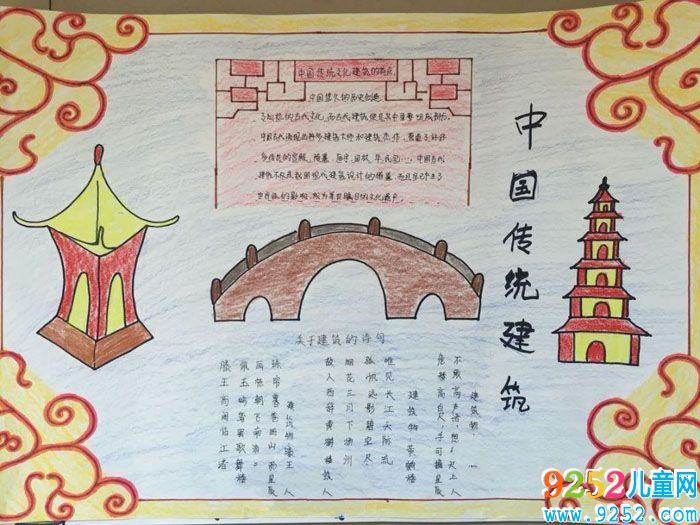 中国传统建筑
中国传统文化建筑的特点
中国悠久的历史创造
了灿烂的古代文化,而古代建筑便是其中重要组成部分。
中国古代涌现出许多建筑大师和建筑杰作,营造了许许
多传世的宫殿、陵墓、庙宇、园林、民宅
中国古代
建筑不仅是我国现代建筑设计的借鉴,而且早已产生了
世界性的影响,成为举世瞩目的文化遗产。
关于建筑的诗句
建筑物:
不敢高声语,恐天上人
危楼高百尺,手可摘星辰
建筑物黄鹤楼
唯见长江天际流
孤帆远影碧空尽
烟花三月下扬州
故人西辞黄鹤楼
建筑物滕王
珠帘暮卷西山雨
画栋朝飞南浦
佩玉鸣鸾罢歌舞
滕王高阁临江渚
9252儿童网
www.9252.com